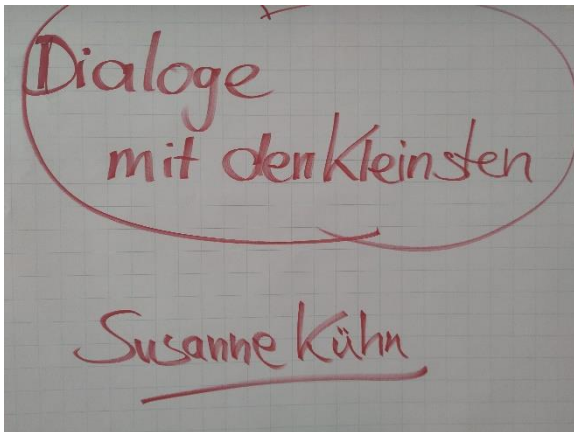 Dialoge
mit den Kleinsten
Susanne Kühn